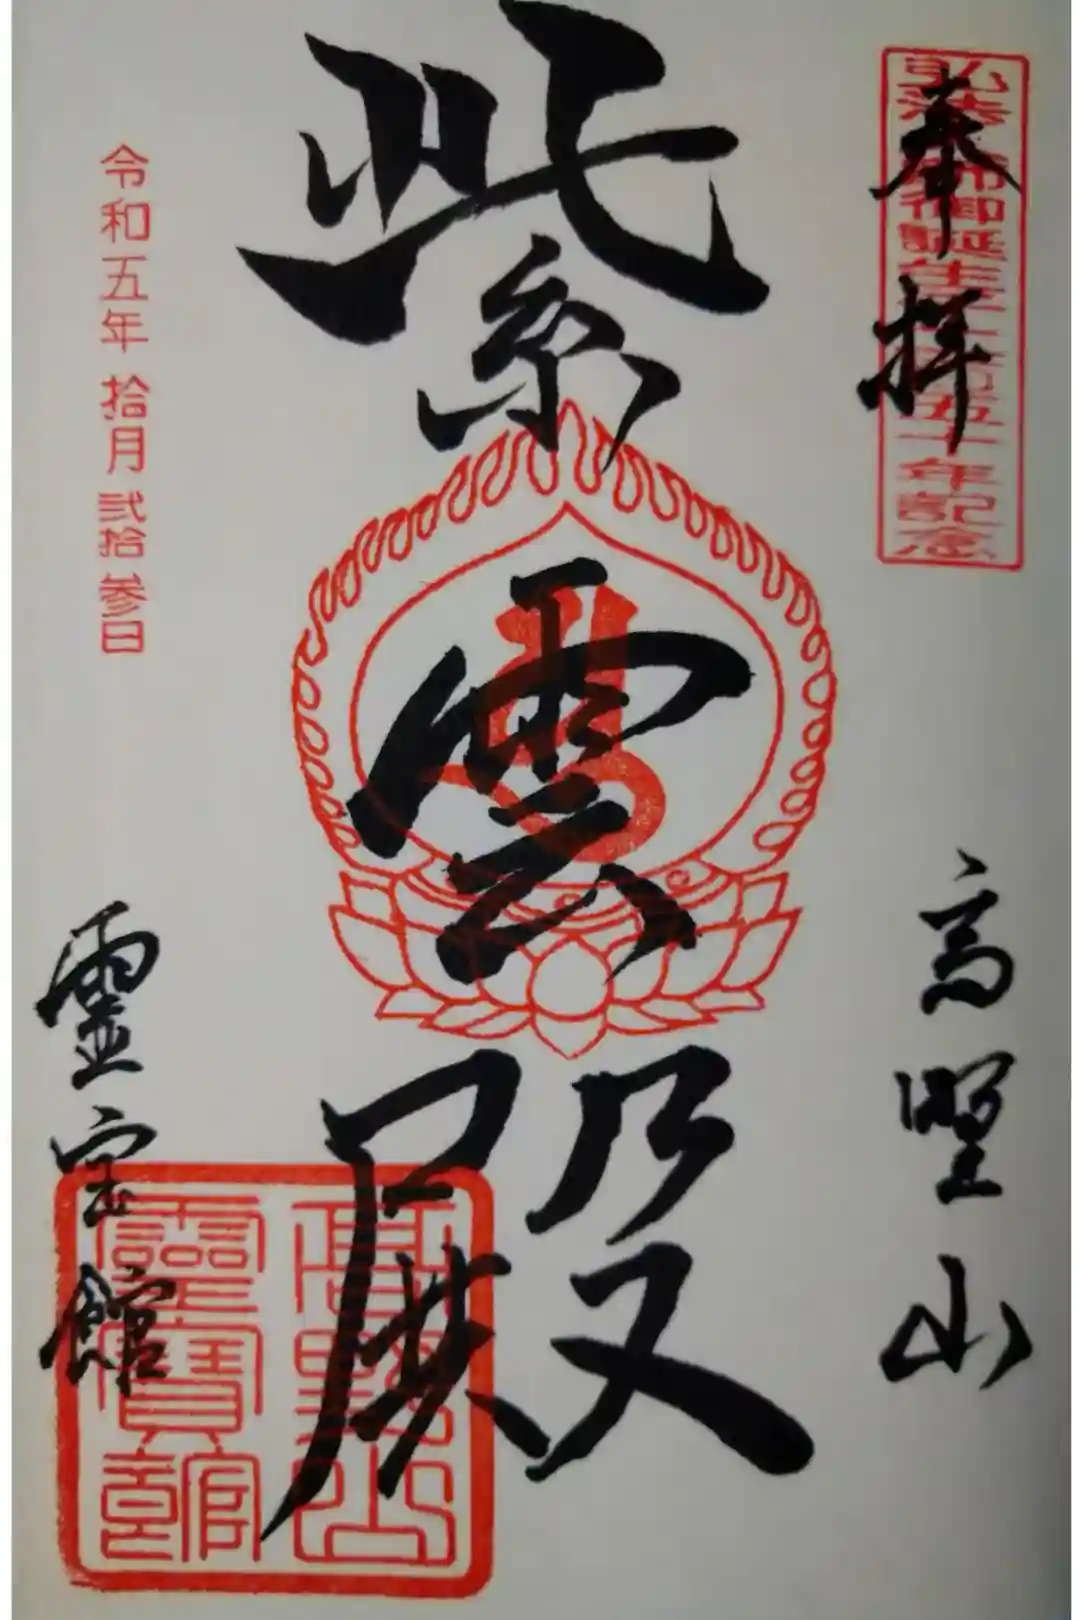 奉拝
弘法大師御誕生千二百五十年記念
高野山
紫雲殿
高野山
靈寶館
霊宝館
令和五年拾月弐拾参日